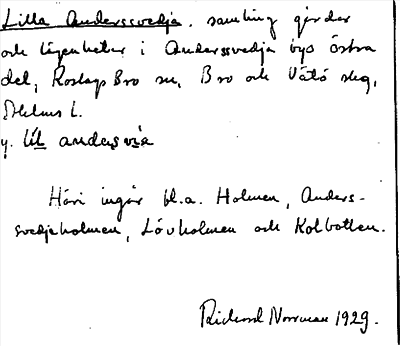 Lilla Anderssvedja, samling gårdar
och lägenheter i Anderssvedja bys östra
del, Roslags Bro sn, Bro och Vätö skg,
Sthlms l.
y. lìl andəsvia
Häri ingår bl.a. Holmen, Anders-
svedjeholmen, Lövholmen och Kolbotten.
Rickard Norrman 1929.